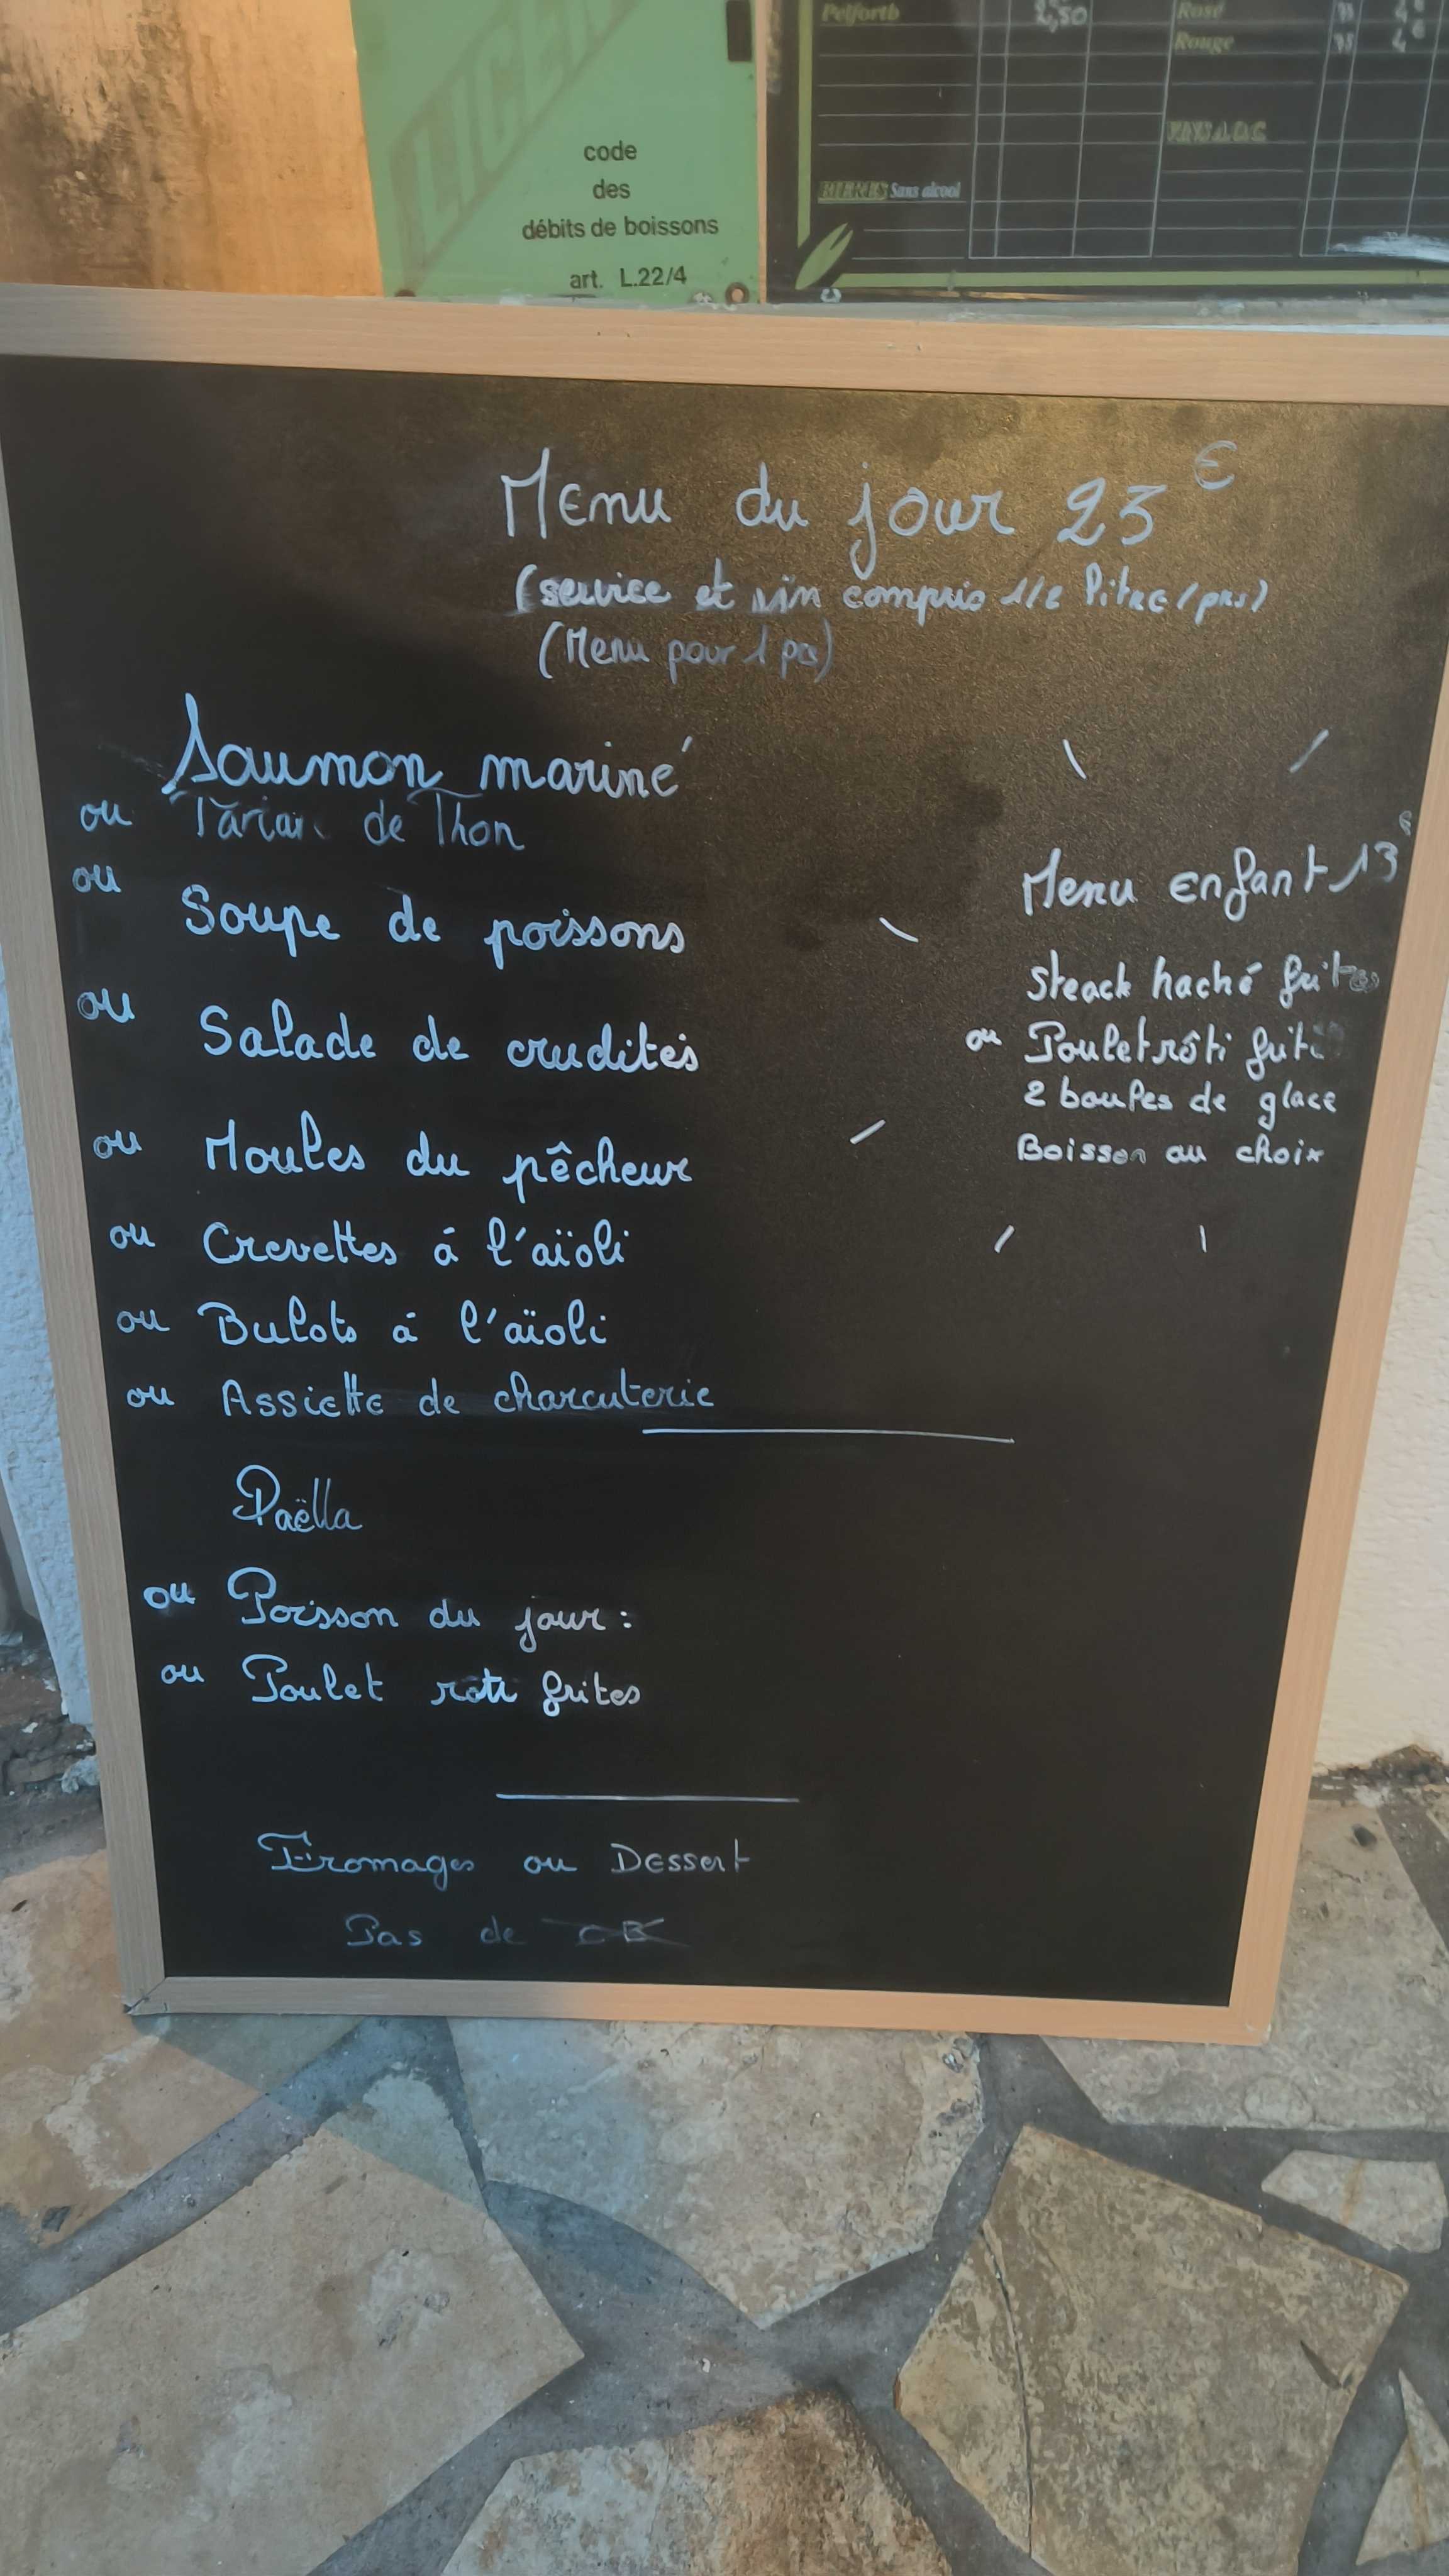 LICEN
code
des
débits de boissons
art. L.22/4
Pelforth 2,50
Rosé
Rouge
VINS A.O.C
BIERES Sans alcool
Menu du jour 23€
(service et vin compris 1/2 litre/prs)
(Menu pour 1 prs)
Saumon mariné
ou de Thon
ou Soupe de poissons
ou Salade de crudités
ou Moules du pêcheur
ou Crevettes á l'aïoli
ou Bulots á l'aïoli
ou Assiette de charcuterie
Paëlla
ou Poisson du jour :
ou Poulet rôti frites
Fromages ou Dessert
Pas de CB
Menu enfant 13€
Steack haché frites
ou Poulet rôti frites
2 boules de glace
Boisson au choix